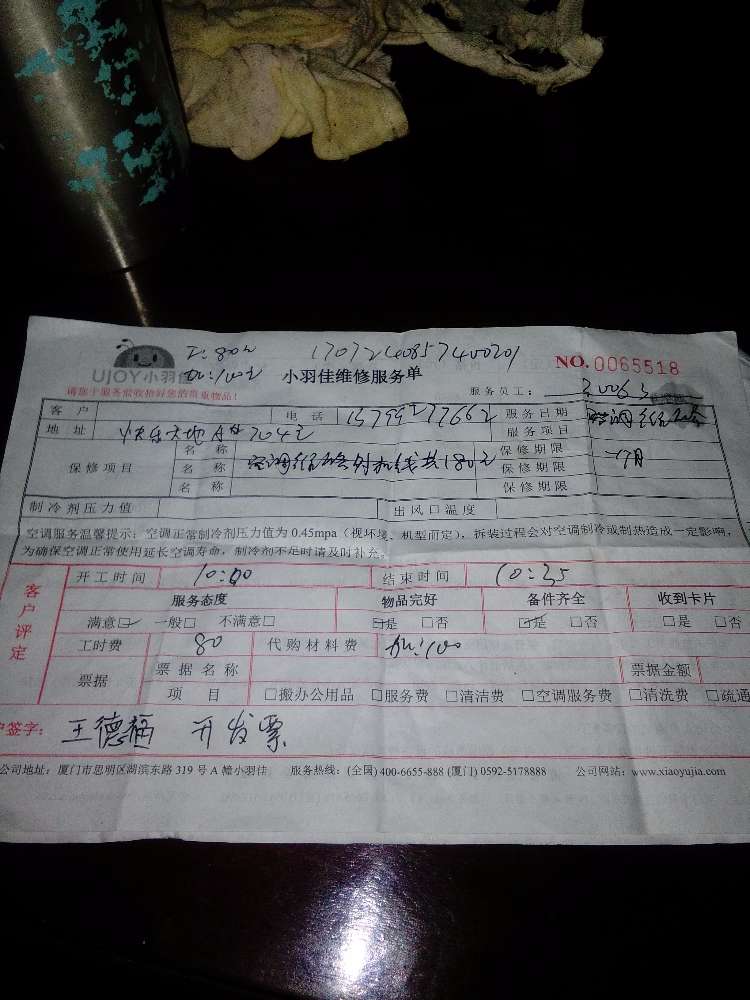 工:80元 1707240857400201
UJOY小羽佳 加:100元 小羽佳维修服务单 NO.0065518
请您于服务前收拾好您的贵重物品! 服务员工: 30063
客户 电话 15799277662 服务日期
地址 快乐大地A 704 服务项目 空调
名称 保修期限
保修项目 名称 空调 共180元 保修期限 一个月
名称 保修期限
制冷剂压力值 出风口温度
空调服务温馨提示:空调正常制冷剂压力值为 0.45mpa(视环境、机型而定),拆装过程会对空调制冷或制热造成一定影响,
为确保空调正常使用延长空调寿命,制冷剂不足时请及时补充。
开工时间 10:00 结束时间 10:35
客户评定 服务态度 物品完好 备件齐全 收到卡片
满意☑ 一般□ 不满意□ ☑是 □否 ☑是 □否 □是 □否
工时费 80 代购材料费 加:100
票据 票据名称 票据金额
项目 □搬办公用品 □服务费 □清洁费 □空调服务费 □清洗费 □疏通
户签字: 王德福 开发票
公司地址:厦门市思明区湖滨东路 319 号 A 幢小羽佳 服务热线:(全国) 400-6655-888 (厦门) 0592-5178888 公司网站:www.xiaoyujia.com